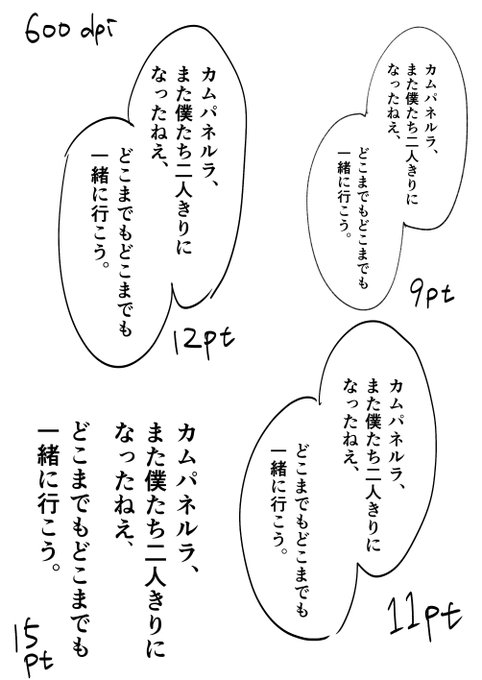 600 dpi
カムパネルラ、
また僕たち二人きりに
なったねえ、
どこまでもどこまでも
一緒に行こう。
9pt
カムパネルラ、
また僕たち二人きりに
なったねえ、
どこまでもどこまでも
一緒に行こう。
12pt
カムパネルラ、
また僕たち二人きりに
なったねえ、
どこまでもどこまでも
一緒に行こう。
11pt
カムパネルラ、
また僕たち二人きりに
なったねえ、
どこまでもどこまでも
一緒に行こう。
15
pt